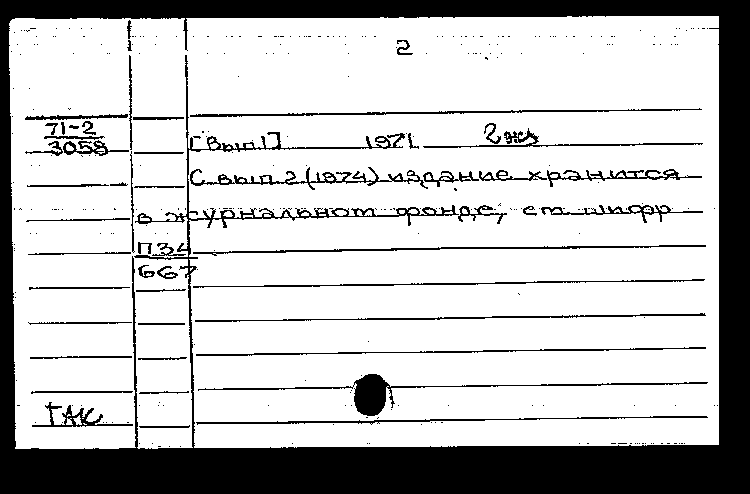 2
71-2
3058
[Вып 1] 1971 2 экз
С вып 2 (1974) издание хранится
в журнальном фонде, см шифр
П34
667
ГАК